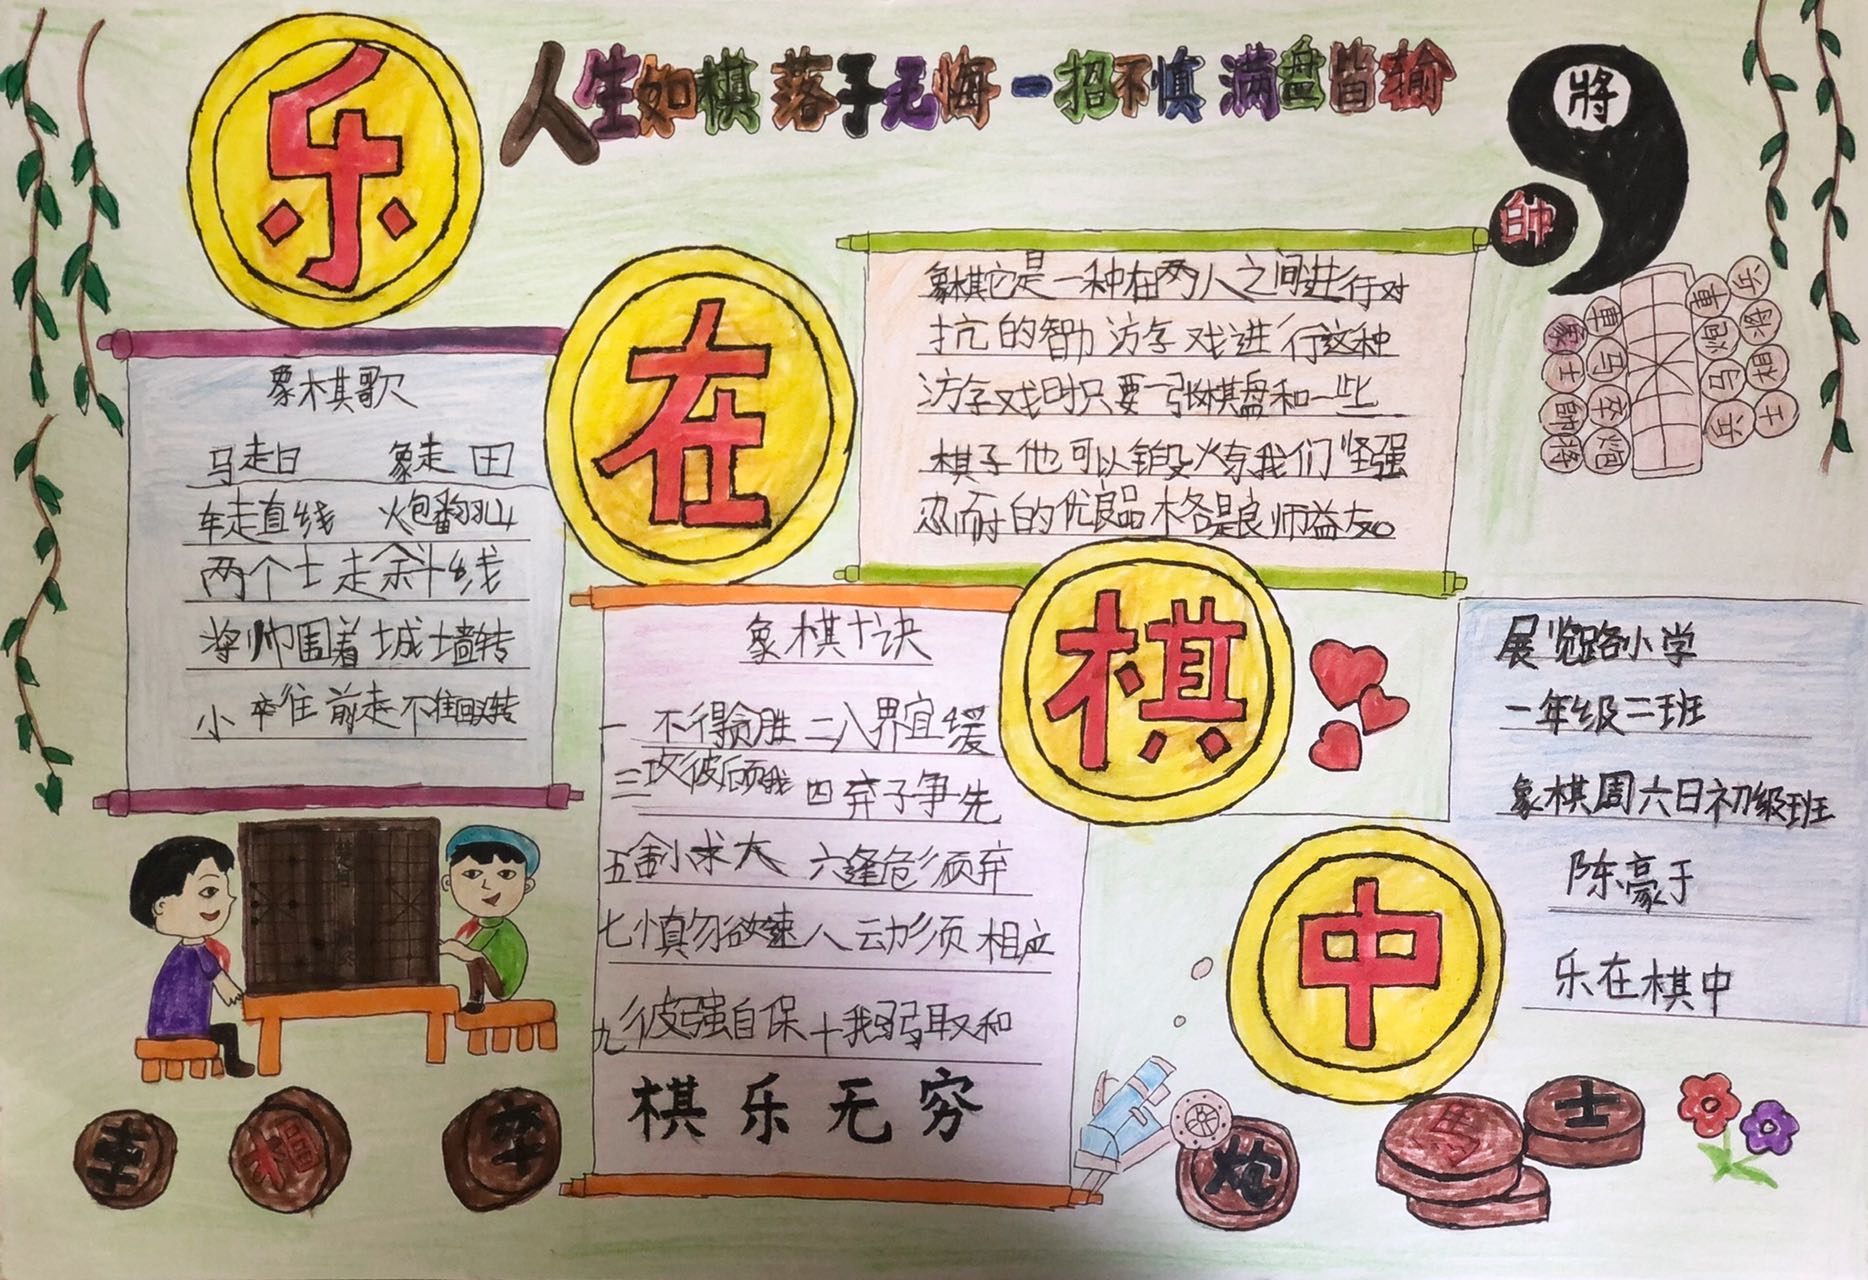 乐
在
棋
中
人生如棋 落子无悔 一招不慎 满盘皆输
將
帥
象棋它是一种在两人之间进行对
抗的智力游戏进行这种
游戏时只要一张棋盘和一些
棋子他可以锻炼我们坚强
忍耐的优良品格是良师益友。
象棋歌
马走日 象走田
车走直线 炮翻山
两个士走斜线
将帅围着城墙转
小卒往前走不准回头转
象棋十诀
一 不得贪胜 二入界宜缓
三攻彼顾我 四弃子争先
五舍小求大 六逢危须弃
七慎勿欲速 八动须相应
九彼强自保 十我弱取和
棋乐无穷
展览路小学
一年级二班
象棋周六日初级班
陈豪于
乐在棋中
車
相
卒
炮
馬
士